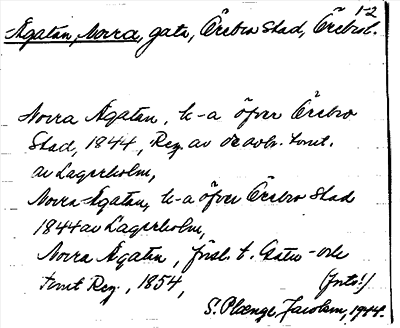 1-2
Ågatan, Norra, gata, Örebro Stad, Örebro l.
Norra Ågatan, k-a öfver Örebro
Stad, 1844, Reg. av oravb. tomt.
av Lagerholm,
Norra Ågatan, k-a öfver Örebro Stad
1844 av Lagerholm,
Norra Ågatan, försl. t. Gatu- och
tomt Reg., 1854, (forts!)
S. Jacobson, 1944.